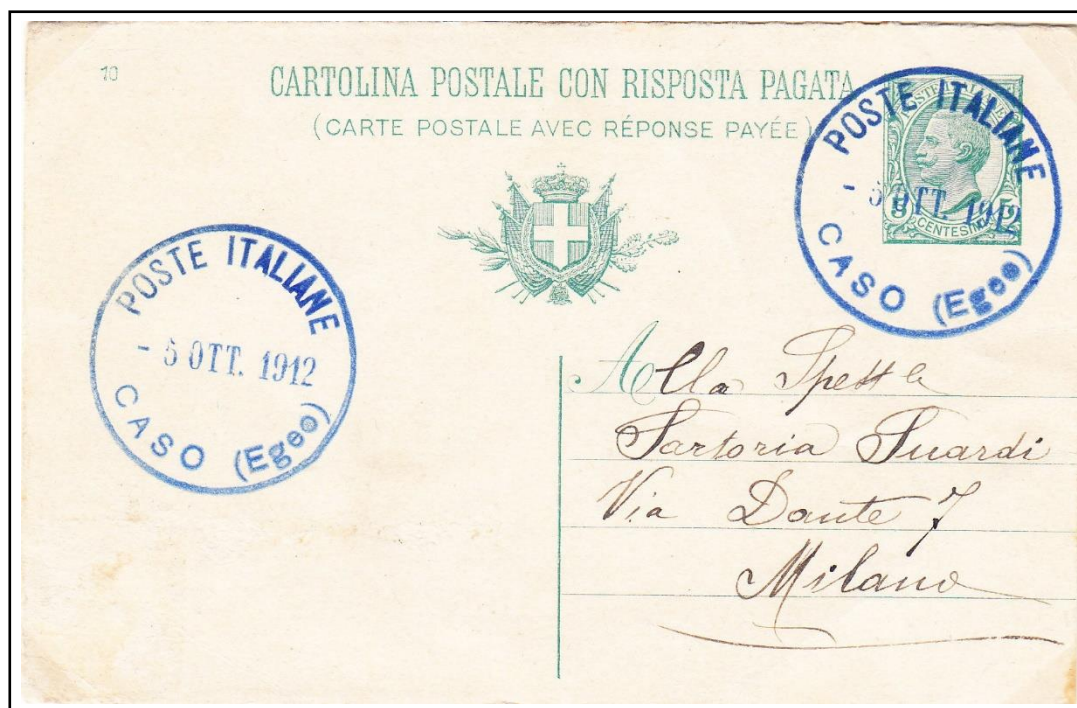 10
CARTOLINA POSTALE CON RISPOSTA PAGATA
(CARTE POSTALE AVEC RÉPONSE PAYÉE)
POSTE ITALIANE
- 5 OTT. 1912
CASO (Egeo)
CENTESIMI
POSTE ITALIANE
- 5 OTT. 1912
CASO (Egeo)
Alla Spett le
Sartoria Suardi
Via Dante 7
Milano